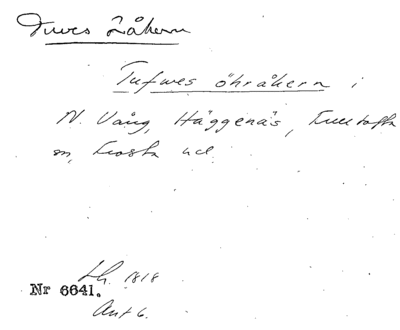 Tuves Låkern
Tufwes öhråkern i
N. Vång, Häggenäs, Fulltofta
sn, Frosta hd.
Lh. 1818
Nr 6641.
Ant 6.